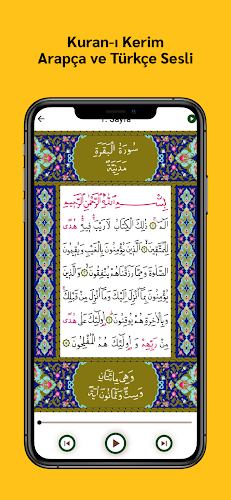 Kuran-ı Kerim
Arapça ve Türkçe Sesli
1. Sayfa
سُورَةُ الْبَقَرَةِ
مَدَنِيَّةٌ
بِسْمِ اللّٰهِ الرَّحْمٰنِ الرَّحِيمِ
الٓمٓ ۞ ذٰلِكَ الْكِتَابُ لَا رَيْبَ فِيهِ هُدًى
لِلْمُتَّقِينَ ۞ اَلَّذِينَ يُؤْمِنُونَ بِالْغَيْبِ وَيُقِيمُونَ
الصَّلٰوةَ وَمِمَّا رَزَقْنَاهُمْ يُنْفِقُونَ ۞ وَالَّذِينَ
يُؤْمِنُونَ بِمَٓا اُنْزِلَ اِلَيْكَ وَمَٓا اُنْزِلَ مِنْ قَبْلِكَ
وَبِالْاٰخِرَةِ هُمْ يُوقِنُونَ ۞ اُو۬لٰٓئِكَ عَلٰى هُدًى
مِنْ رَبِّهِمْ وَاُو۬لٰٓئِكَ هُمُ الْمُفْلِحُونَ ۞
وَهِيَ مِائَتَانِ
وَسِتٌّ وَثَمَانُونَ اٰيَةً